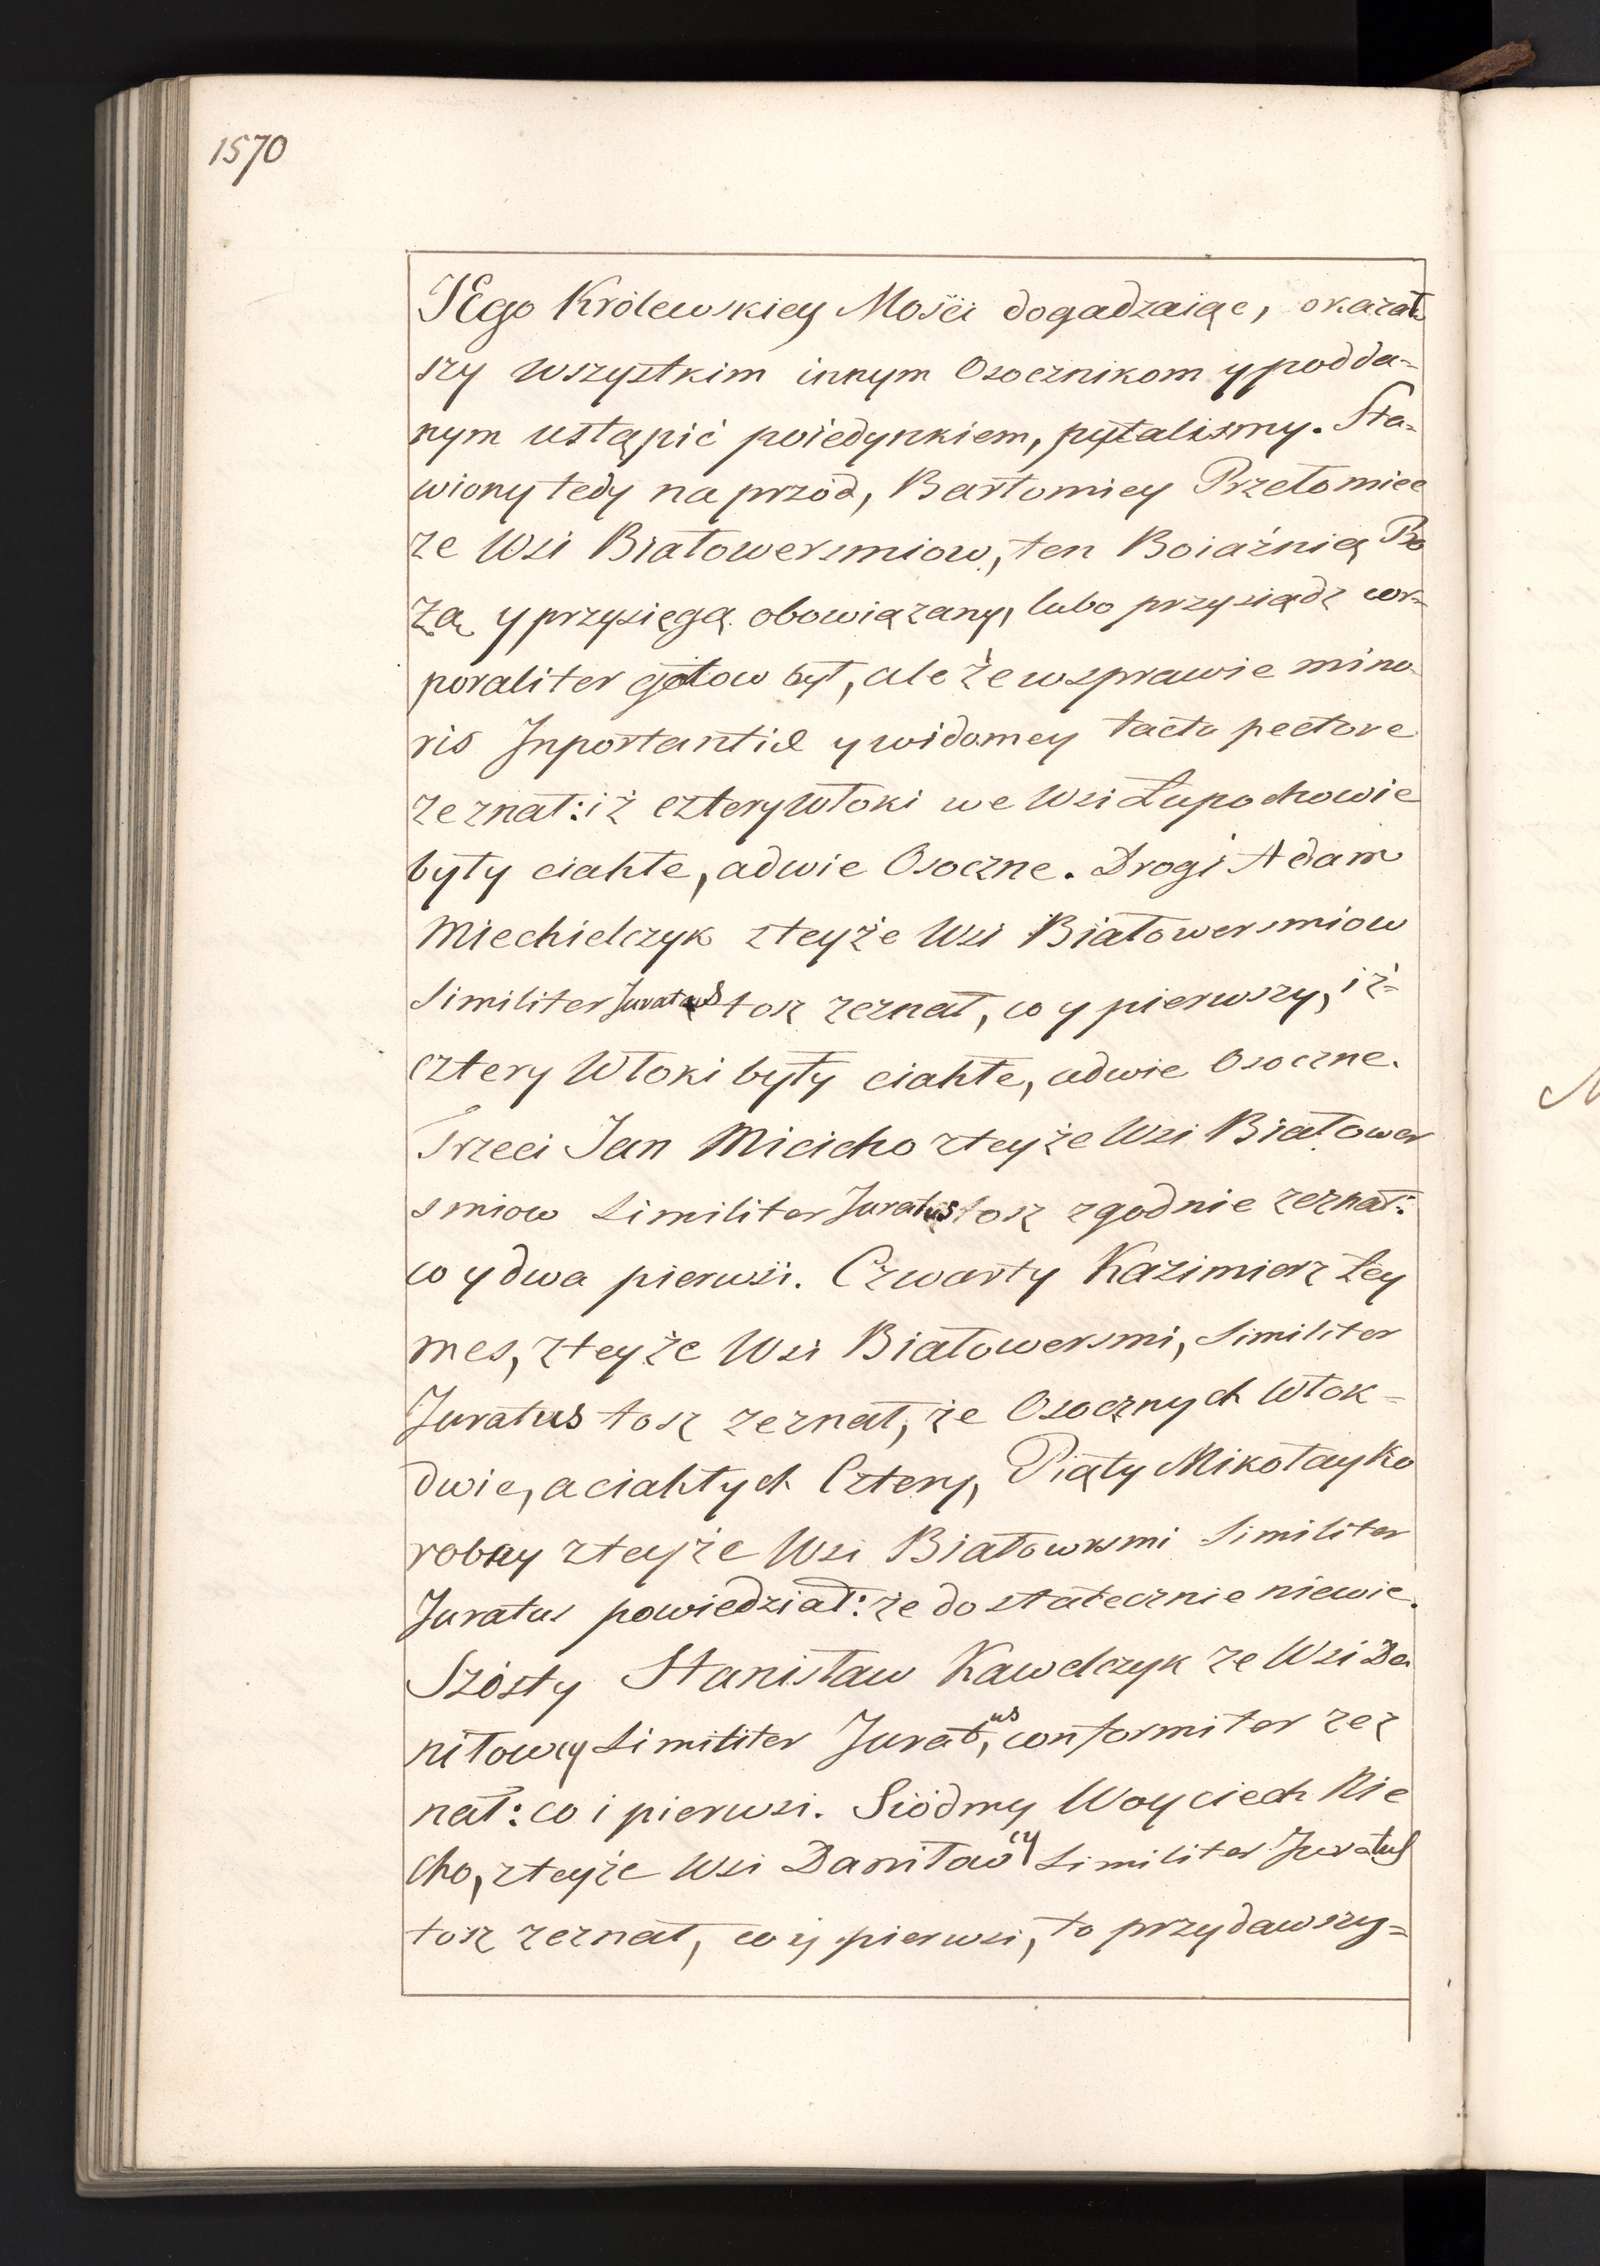 1570
JEgo Królewskiey Mości dogadzaiąc, okazał
szy wszystkim innym Osocznikom y podda-
nym ustąpić poiedynkiem, pytalismy. Sta-
wiony tedy na przód, Bartomiey Przełomiec
ze Wsi Białowersmiow, ten Boiaźnią Bo
żą y przysięgą obowiązany, lubo przysiądz cor-
poraliter gotow był, ale że w sprawie mino
ris Inportantiæ y widomey tacto pectore
zeznał: iż cztery Włoki we Wsi Łupochowie
były ciahłe, a dwie Osoczne. Drogi Adam
Miechielczyk z teyże Wsi Białowersmiow
Similiter Juratus tosz zeznał, co y pierwszy, iż-
cztery Włoki były ciahłe, a dwie Osoczne.
Trzeci Jan Micicho z teyże Wsi Białower
smiow Similiter Juratus tosz zgodnie zeznał:
co y dwa pierwsi. Czwarty Kazimierz Ley
mes, z teyże Wsi Białowersmi, Similiter
Juratus tosz zeznał, że Osocznych Włok-
dwie, a ciahłych Cztery, Piąty Mikołay Ko
robny z teyże Wsi Białowrsmi Similiter
Juratus powiedział: że dostatecznie niewie.
Szósty Stanisław Kawelczyk ze Wsi Da
niłowcy Similiter Juratus, conformiter zez
nał: co i pierwsi. Siódmy Woyciech Mie
cho, z teyże Wsi Daniłowcy Similiter Juratus
tosz zeznał, co y pierwsi, to przydawszy-